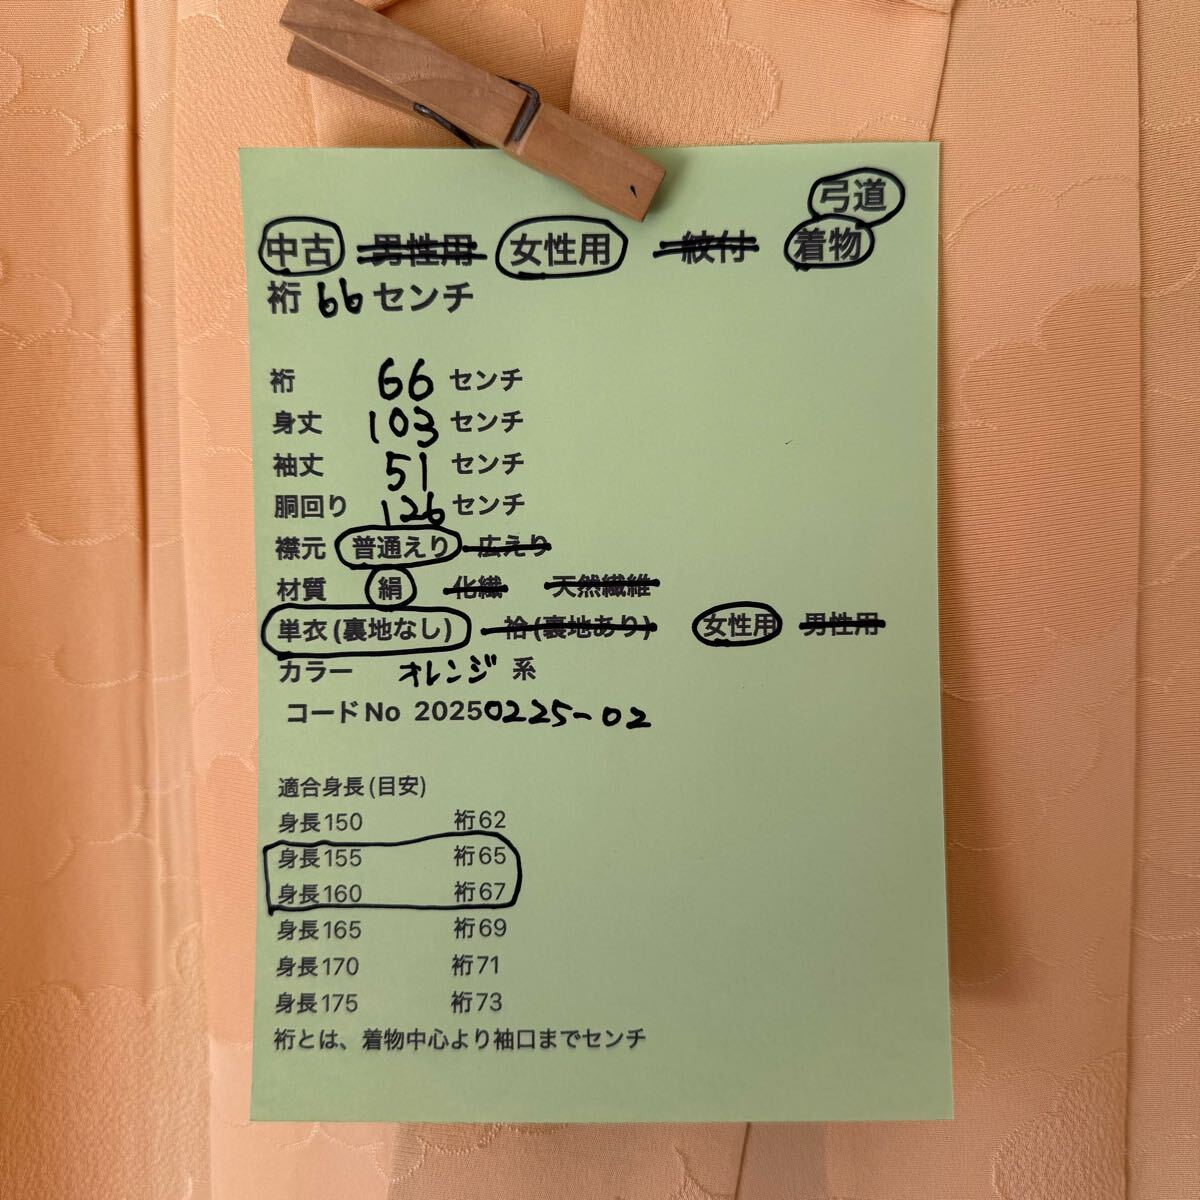 弓道
中古 男性用 女性用 紋付 着物
裄 66 センチ
裄 66 センチ
身丈 103 センチ
袖丈 51 センチ
胴回り 126 センチ
襟元 普通えり 広えり
材質 絹 化繊 天然繊維
単衣(裏地なし) 袷(裏地あり) 女性用 男性用
カラー オレンジ 系
コードNo 20250225-02
適合身長(目安)
身長150 裄62
身長155 裄65
身長160 裄67
身長165 裄69
身長170 裄71
身長175 裄73
裄とは、着物中心より袖口までセンチ